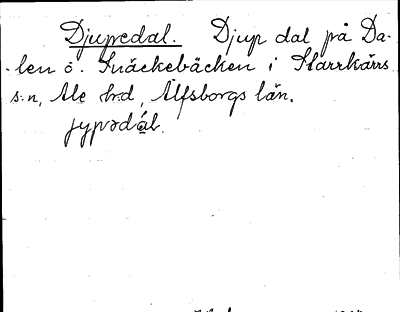 Djupedal. Djup dal på Da-
-len ö. Knäckebäcken i Starrkärrs
s:n, Ale hrd, Älfsborgs län.
jypədál.